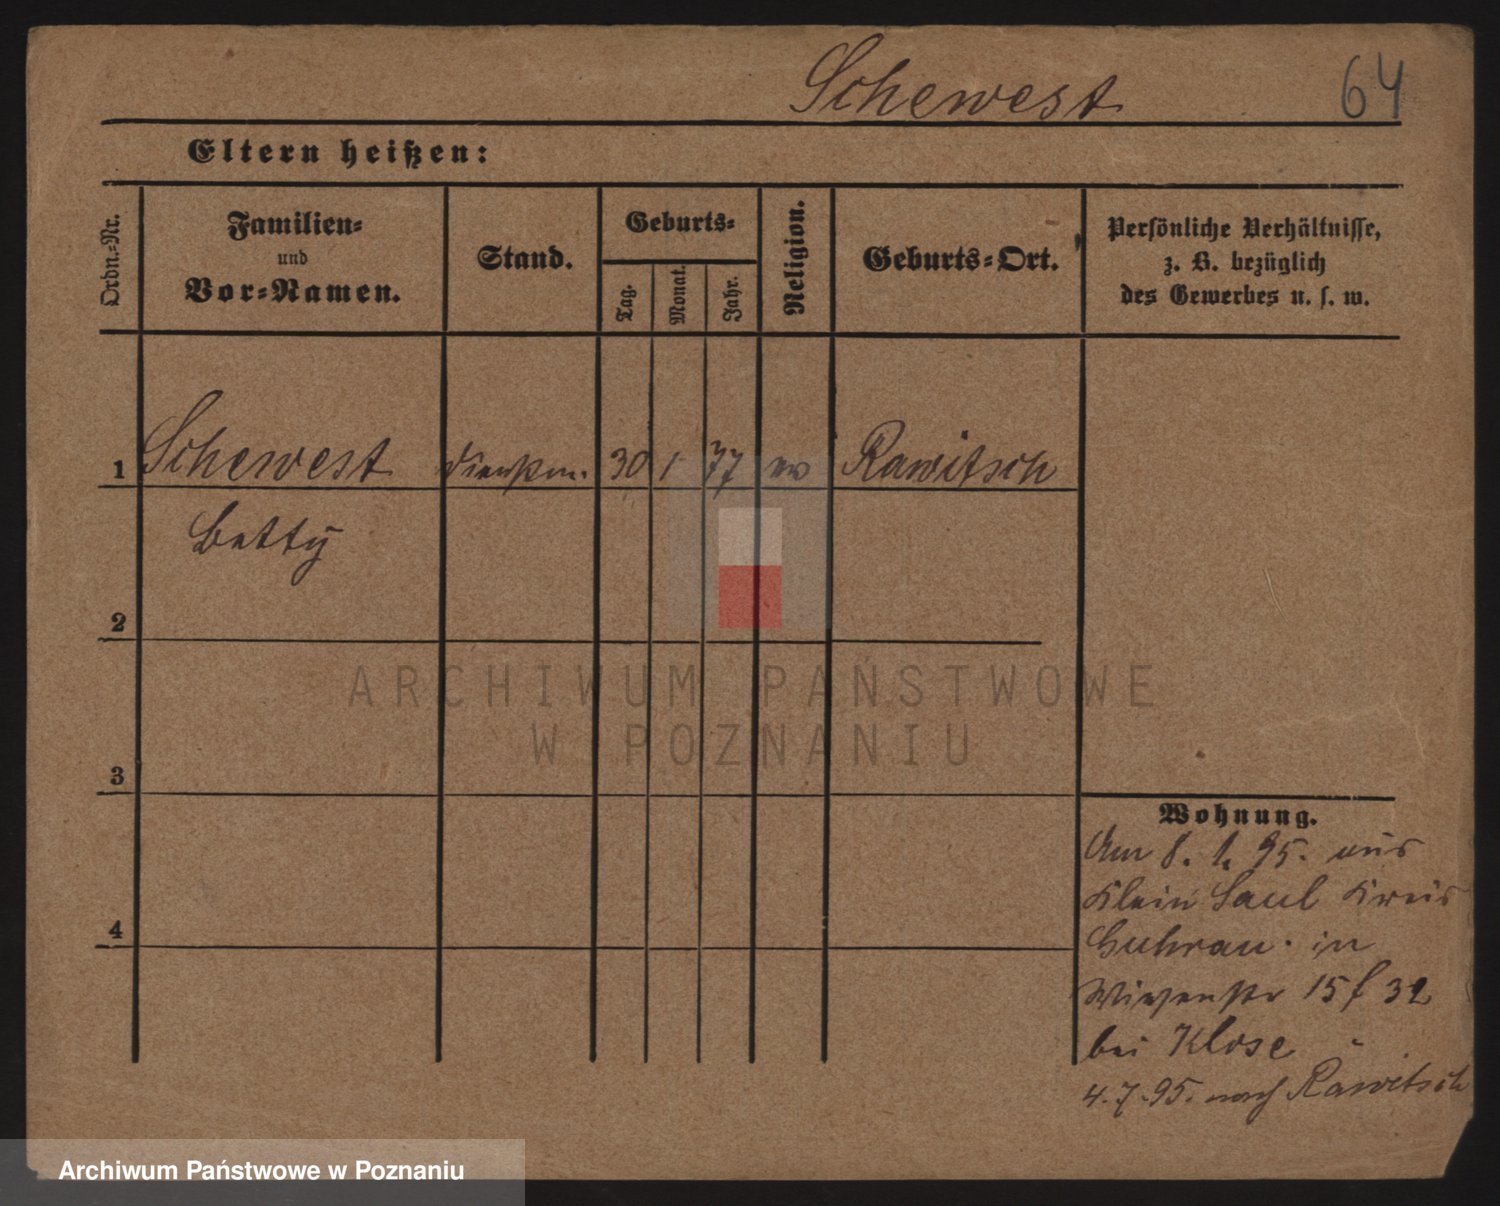 Schewest 64
Eltern heißen:
Ordn.-Nr.
Familien-
und
Vor-Namen.
Stand.
Geburts-
Tag. Monat. Jahr.
Religion.
Geburts-Ort.
Persönliche Verhältnisse,
z. B. bezüglich
des Gewerbes u. s. w.
1 Schewest 30 1 77 ev Rawitsch
Betty
2
3
4
Wohnung.
Am 8. 1. 95. aus
Klein Saul Kreis
Guhrau. in
Wiesenstr 15 f 32
bei Klose
4. 7. 95. nach Rawitsch
ARCHIWUM PAŃSTWOWE
W POZNANIU
Archiwum Państwowe w Poznaniu